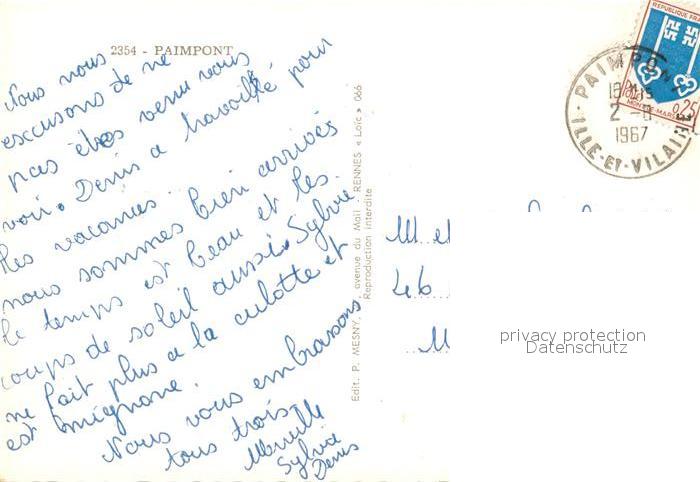 2354 - PAIMPONT
Nous nous
excusons de ne
pas être venu vous
voir. Denis a travaillé pour
les vacances.
nous sommes bien arrivés
le temps est beau et les
coups de soleil aussi. Sylvie
ne fait plus a la culotte et
est mignone.
Nous vous embrassons
tous trois
Sylvie
Denis
Edit. P. MESNY, avenue du Mail - RENNES « Loïc » 066
Reproduction interdite
REPUBLIQUE FRA
0,25
MONT-DE-MARSAN
PAIMPONT
18H15
2 -8
1967
ILLE-ET-VILAINE
M et
46
M
privacy protection
Datenschutz